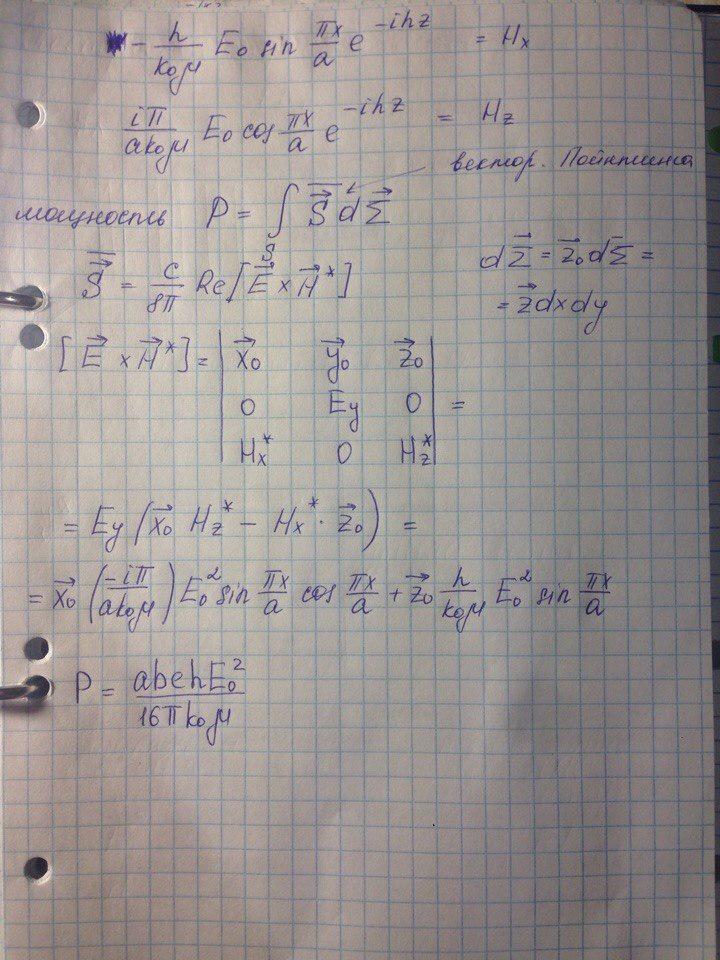 - h/(k₀μ) E₀ sin πx/a e^(-ihz) = Hₓ
iπ/(ak₀μ) E₀ cos πx/a e^(-ihz) = H_z
вектор. Пойнтинга
мощность P = ∫_S S⃗ dΣ⃗
S⃗ = c/8π Re[E⃗ × H⃗*]
dΣ⃗ = z⃗₀ dΣ =
= z⃗ dxdy
[E⃗ × H⃗*] = | x⃗₀ y⃗₀ z⃗₀ |
| 0 Ey 0 | =
| Hₓ* 0 H_z* |
= Ey (x⃗₀ H_z* - Hₓ* · z⃗₀) =
= x⃗₀ (-iπ/(ak₀μ)) E₀² sin πx/a cos πx/a + z⃗₀ h/(k₀μ) E₀² sin πx/a
P = abchE₀²/(16πk₀μ)